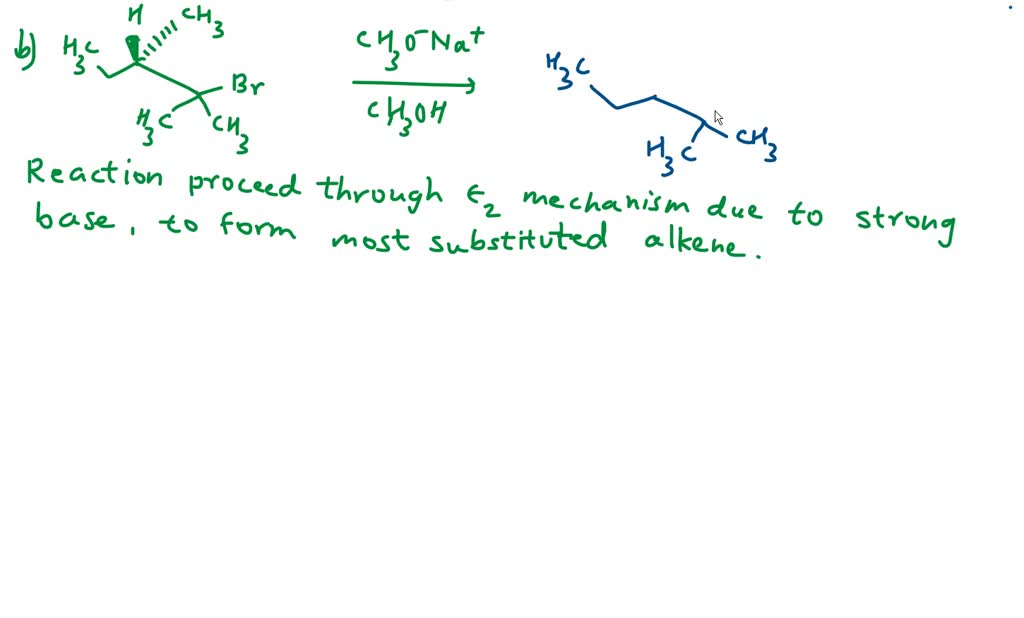 H CH3
b) H3C CH3O⁻Na⁺ H3C
Br
H3C CH3 CH3OH H3C CH3
Reaction proceed through E2 mechanism due to strong
base, to form most substituted alkene.